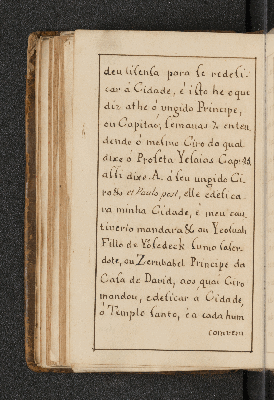 deu lisensa para se redeli-
car á Cidade, é isto he o que
diz athe ó ungido Principe,
ou Capitaõ, semanas 7. enten
dendo ó mesmo Ciro do qual
disse ó Profeta Yesaias Cap. 45.
alli disse. A. á seu ungido Ci-
ro &c et Paulo post, elle edefica-
ra minha Cidade, é meu cau-
tiverio mandara &c ou Yeosuah
Fillo de Yosedek sumo saser-
dote, ou Zerubabel Principe da
Casa de David, aos quai Ciro
mandou, edeficar á Cidade,
ó Templo santo, é a cada hum
comvem